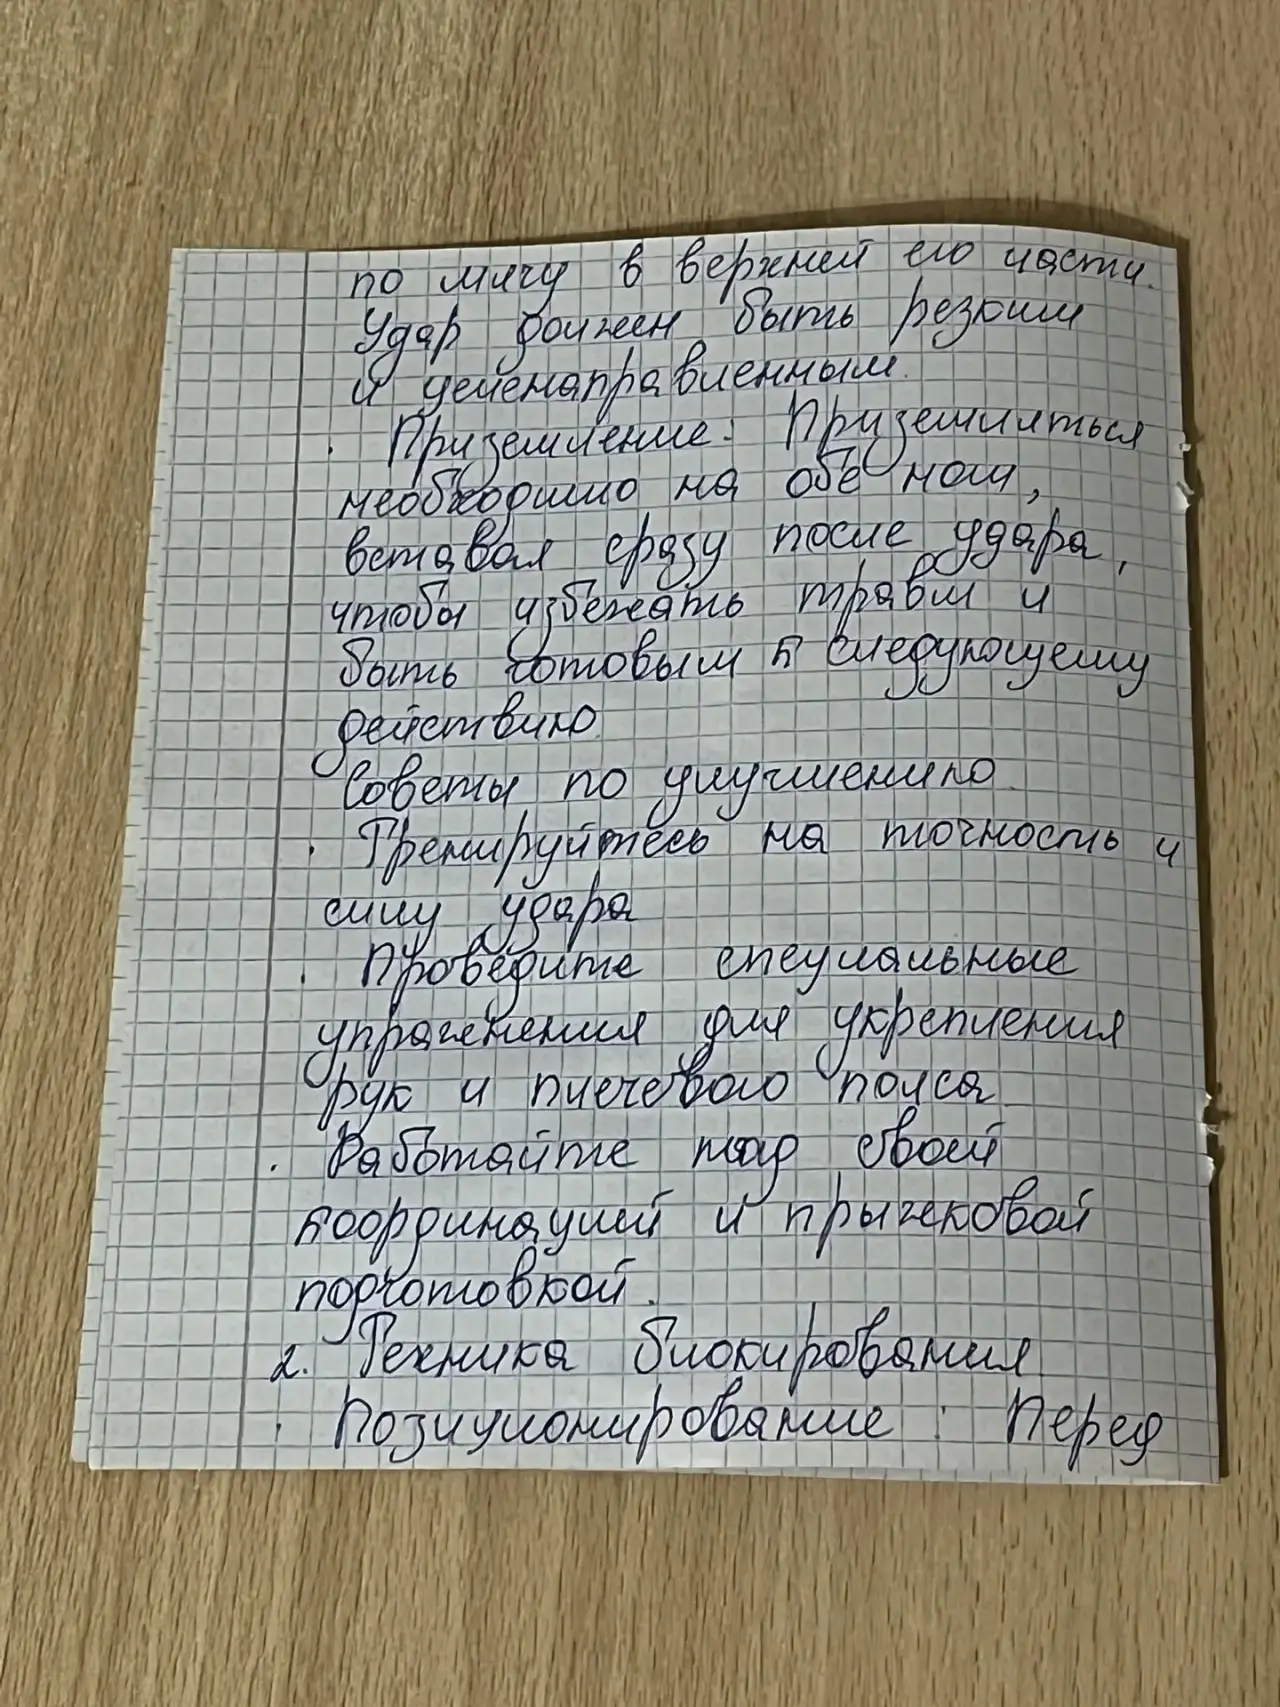 по мячу в верхней его части.
Удар должен быть резким
и целенаправленным.
· Приземление: Приземляться
необходимо на обе ноги,
вставая сразу после удара,
чтобы избежать травм и
быть готовым к следующему
действию
Советы по улучшению.
· Тренируйтесь на точность и
силу удара
· Проведите специальные
упражнения для укрепления
рук и плечевого пояса
· Работайте над своей
координацией и прыжковой
подготовкой.
2. Техника блокирования
· Позиционирование: Перед